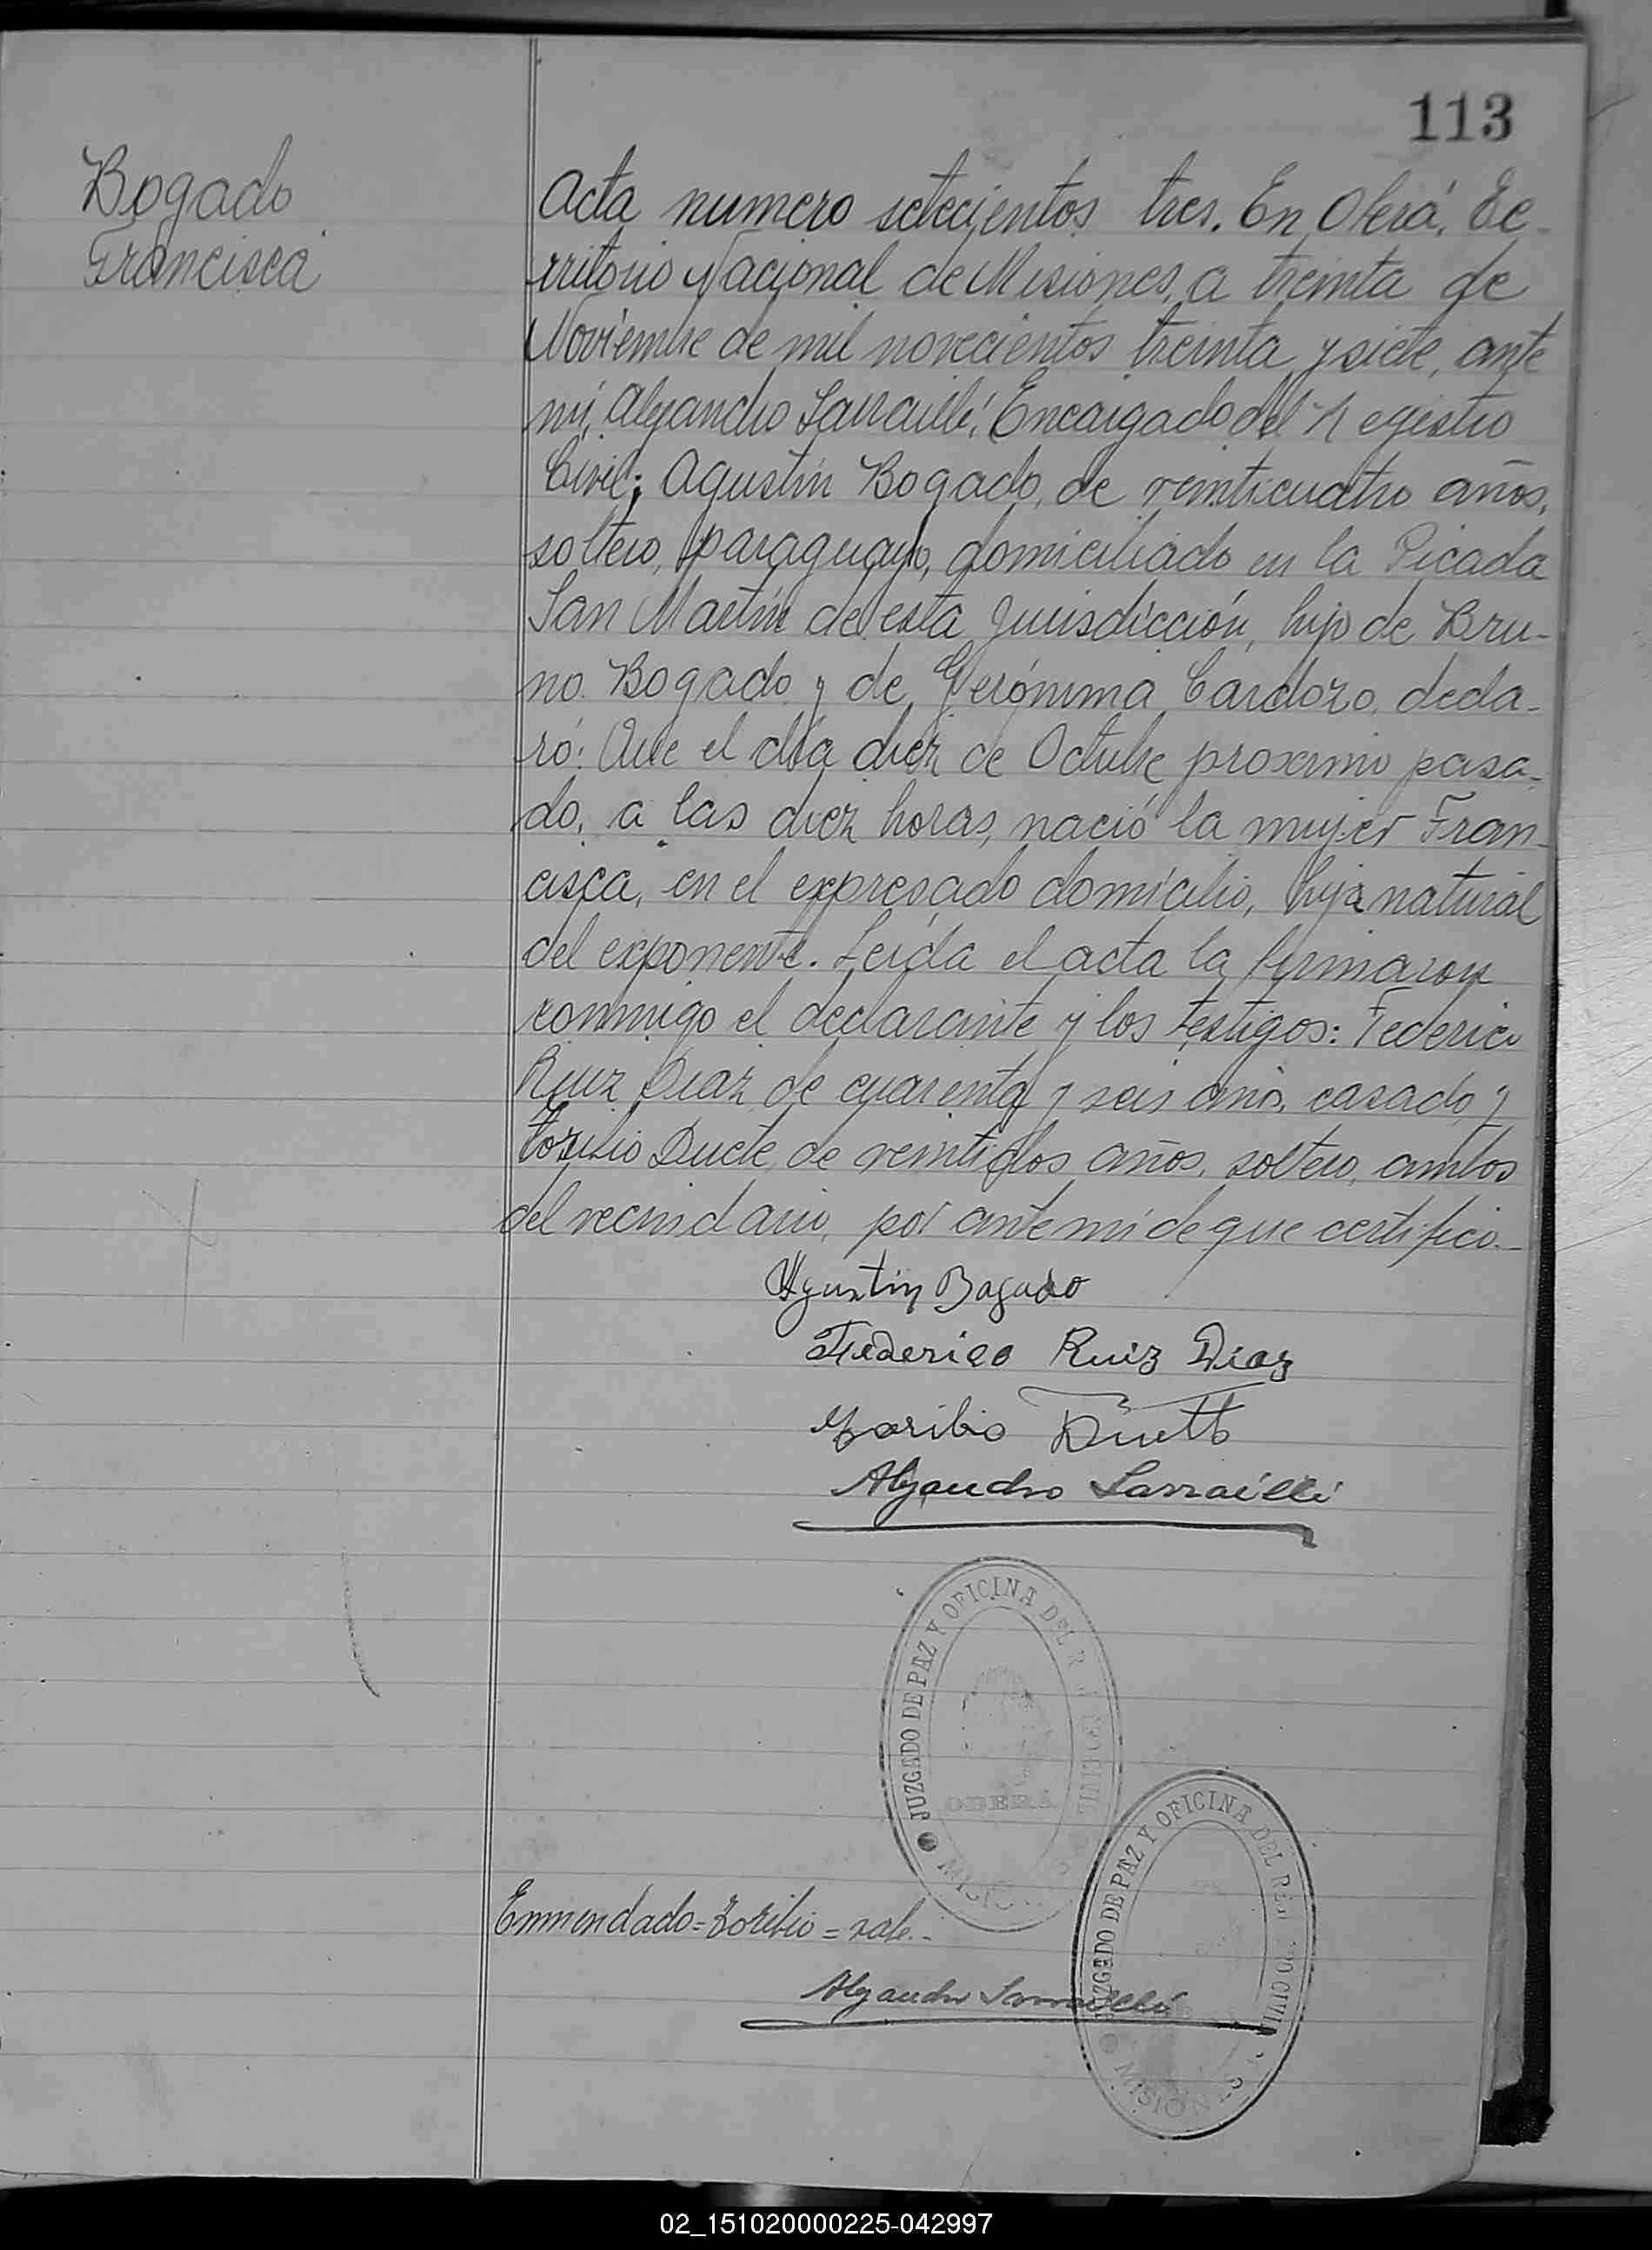 113
Bogado
Francisca
Acta numero setecientos tres. En Oberá, Te-
rritorio Nacional de Misiones, a treinta de
Noviembre de mil novecientos treinta y siete, ante
mí, Alejandro Sarraillé, Encargado del Registro
Civil; Agustín Bogado, de veinticuatro años,
soltero, paraguayo, domiciliado en la Picada
San Martín de esta jurisdicción, hijo de Bru-
no Bogado y de Gerónima Cardozo, decla-
ró: Que el día diez de Octubre proximo pasa-
do, a las diez horas, nació la mujer Fran-
cisca, en el expresado domicilio, hija natural
del exponente. Leída el acta la firmaron
conmigo el declarante y los testigos: Federico
Ruiz Diaz de cuarenta y seis años, casado, y
Toribio Duete de veintidos años, soltero, ambos
del vecindario, por ante mí de que certifico.-
Agustin Bogado
Federico Ruiz Diaz
Toribio
Alejandro Sarraillé
JUZGADO DE PAZ Y OFICINA DEL R CIVIL
OBERA
JUZGADO DE PAZ Y OFICINA DEL REG CIVIL
Enmendado=Toribio=vale.-
Alejandro Sarraillé
02_151020000225-042997